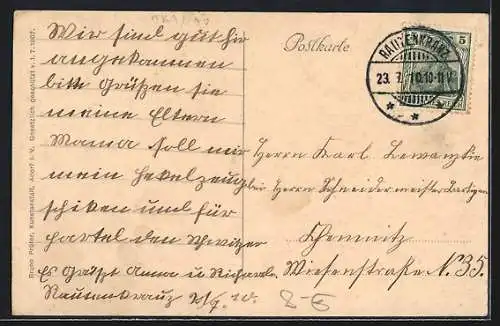 Wir sind gut hir
angekommen
bitte Grüßen sie
meine Eltern
Mama soll mir
mein Hekelzeug
schiken und für
den Schwitzer
Es Grüßt Anna u Richard
Rautenkranz 21/7. 10.
Postkarte
RAUTENKRANZ
23. 7. 10. 10-11 V.
5
Herrn Karl
bei Herrn Schneidermeister
Chemnitz
Wiesenstraße N. 35.
Bruno Prüfer, Kunstanstalt, Adorf i. V. Gesetzlich geschützt v. 1. 7. 1907.